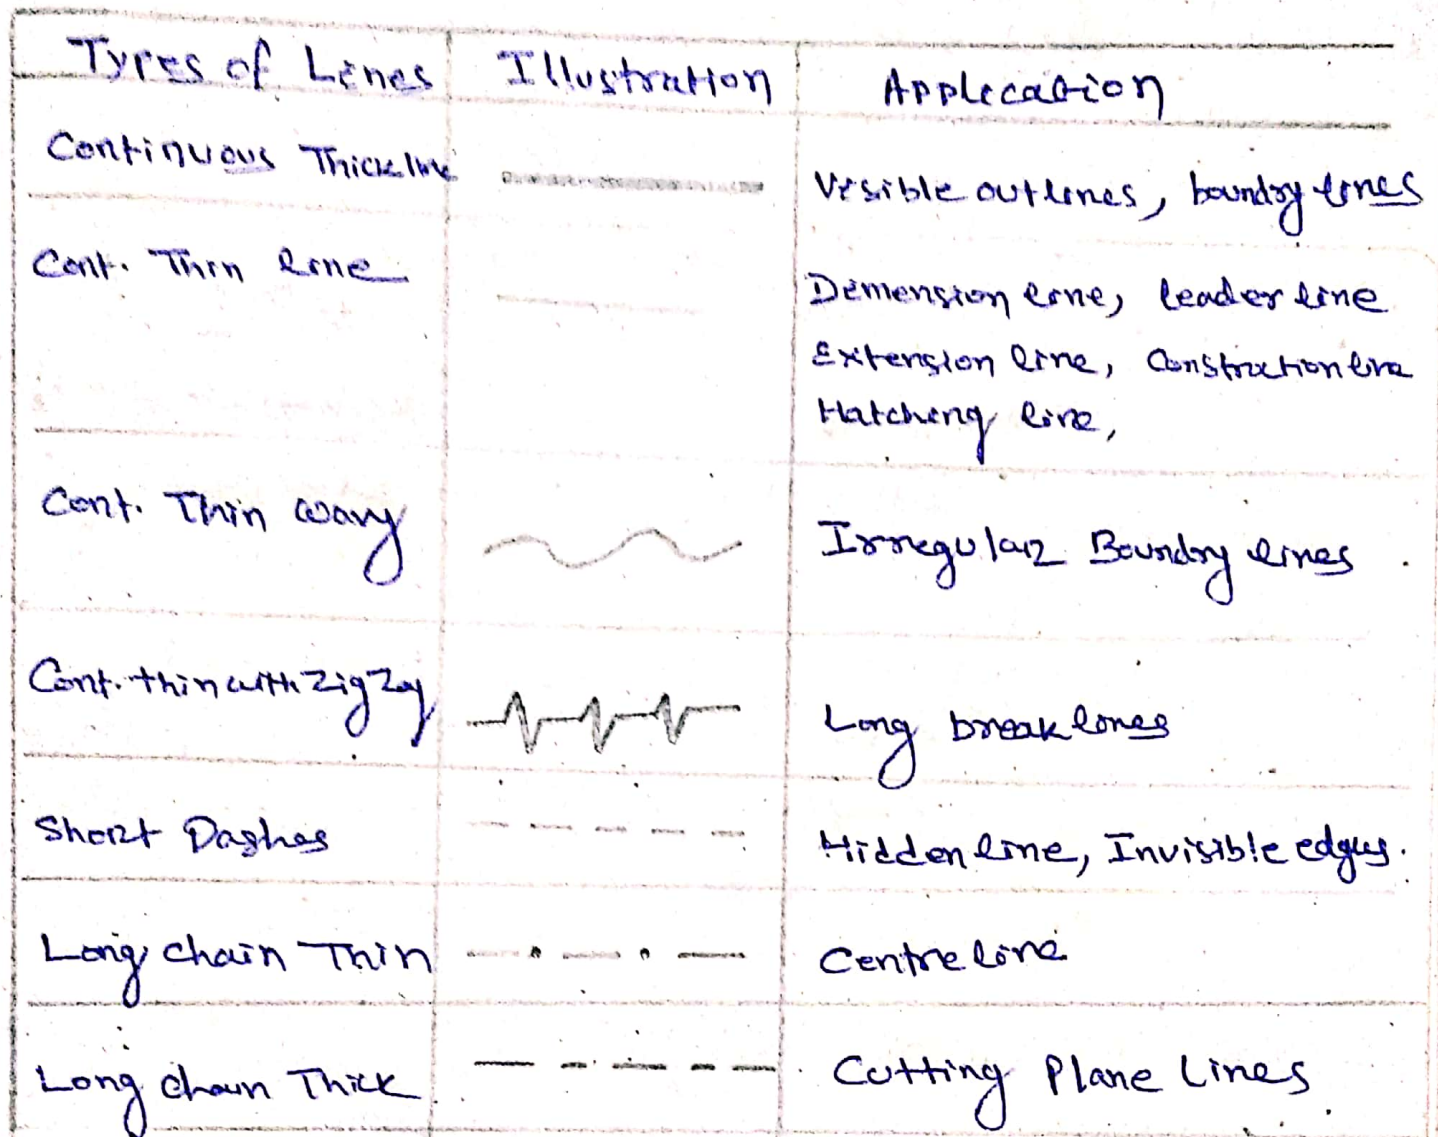 Types of Lines Illustration Application
Continuous Thick line Visible outlines, boundry lines
Cont. Thin line Dimension line, leader line
Extension line, Constraction line
Hatching line,
Cont. Thin wavy Irregular Boundry lines
Cont. thin with Zig Zag Long break lines
Short Dashes Hidden line, Invisible edges.
Long chain Thin Centre line
Long chain Thick Cutting Plane Lines